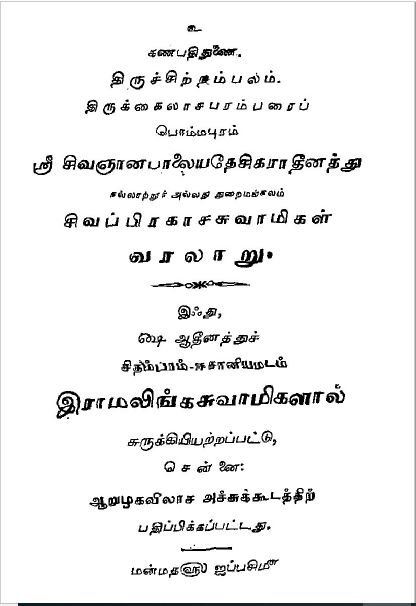 உ
கணபதிதுணை.
திருச்சிற்றம்பலம்.
திருக்கைலாசபரம்பரைப்
பொம்மபுரம்
ஸ்ரீ சிவஞானபாலையதேசிகராதீனத்து
நல்லாற்றூர் அல்லது துறைமங்கலம்
சிவப்பிரகாசசுவாமிகள்
வரலாறு.
இஃது,
௸ ஆதீனத்துச்
சிதம்பரம்-ஈசானியமடம்
இராமலிங்கசுவாமிகளால்
சுருக்கியியற்றப்பட்டு,
சென்னை:
ஆறுமுகவிலாச அச்சுக்கூடத்திற்
பதிப்பிக்கப்பட்டது.
மன்மத௵ ஐப்பசி௴